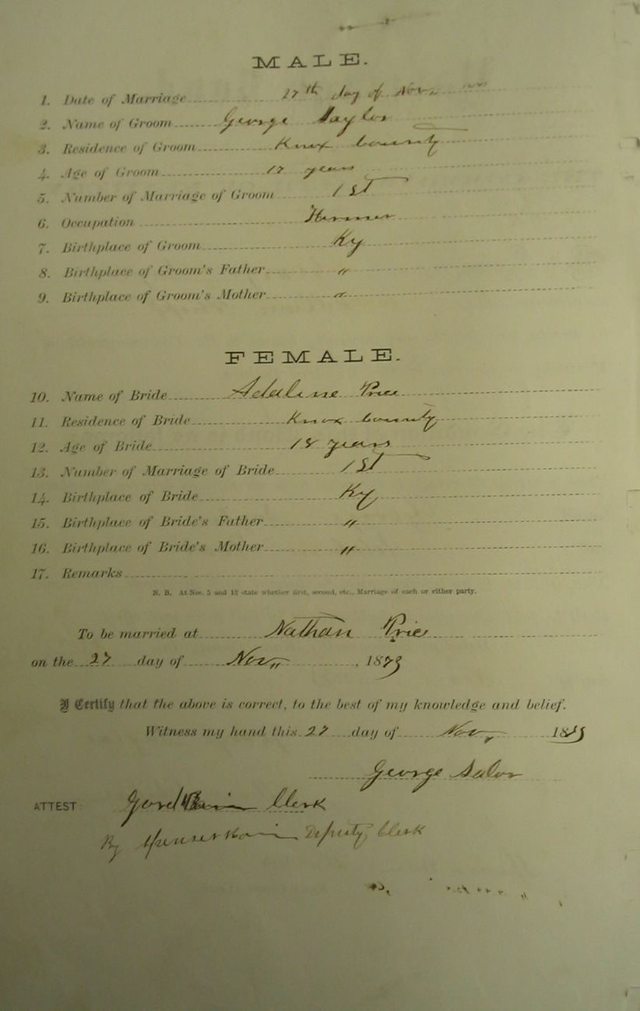 MALE.
1. Date of Marriage 27th day of Nov
2. Name of Groom George Saylor
3. Residence of Groom Knox County
4. Age of Groom years
5. Number of Marriage of Groom 1st
6. Occupation Farmer
7. Birthplace of Groom Ky
8. Birthplace of Groom's Father "
9. Birthplace of Groom's Mother "
FEMALE.
10. Name of Bride Adaline Price
11. Residence of Bride Knox County
12. Age of Bride 18 years
13. Number of Marriage of Bride 1st
14. Birthplace of Bride Ky
15. Birthplace of Bride's Father "
16. Birthplace of Bride's Mother "
17. Remarks
N. B. At Nos. 5 and 13 state whether first, second, etc., Marriage of each or either party.
To be married at Nathan Price
on the 27 day of Nov, 1879
I Certify that the above is correct, to the best of my knowledge and belief.
Witness my hand this 27 day of Nov, 1879
George Salor
ATTEST: Clerk
By Deputy Clerk